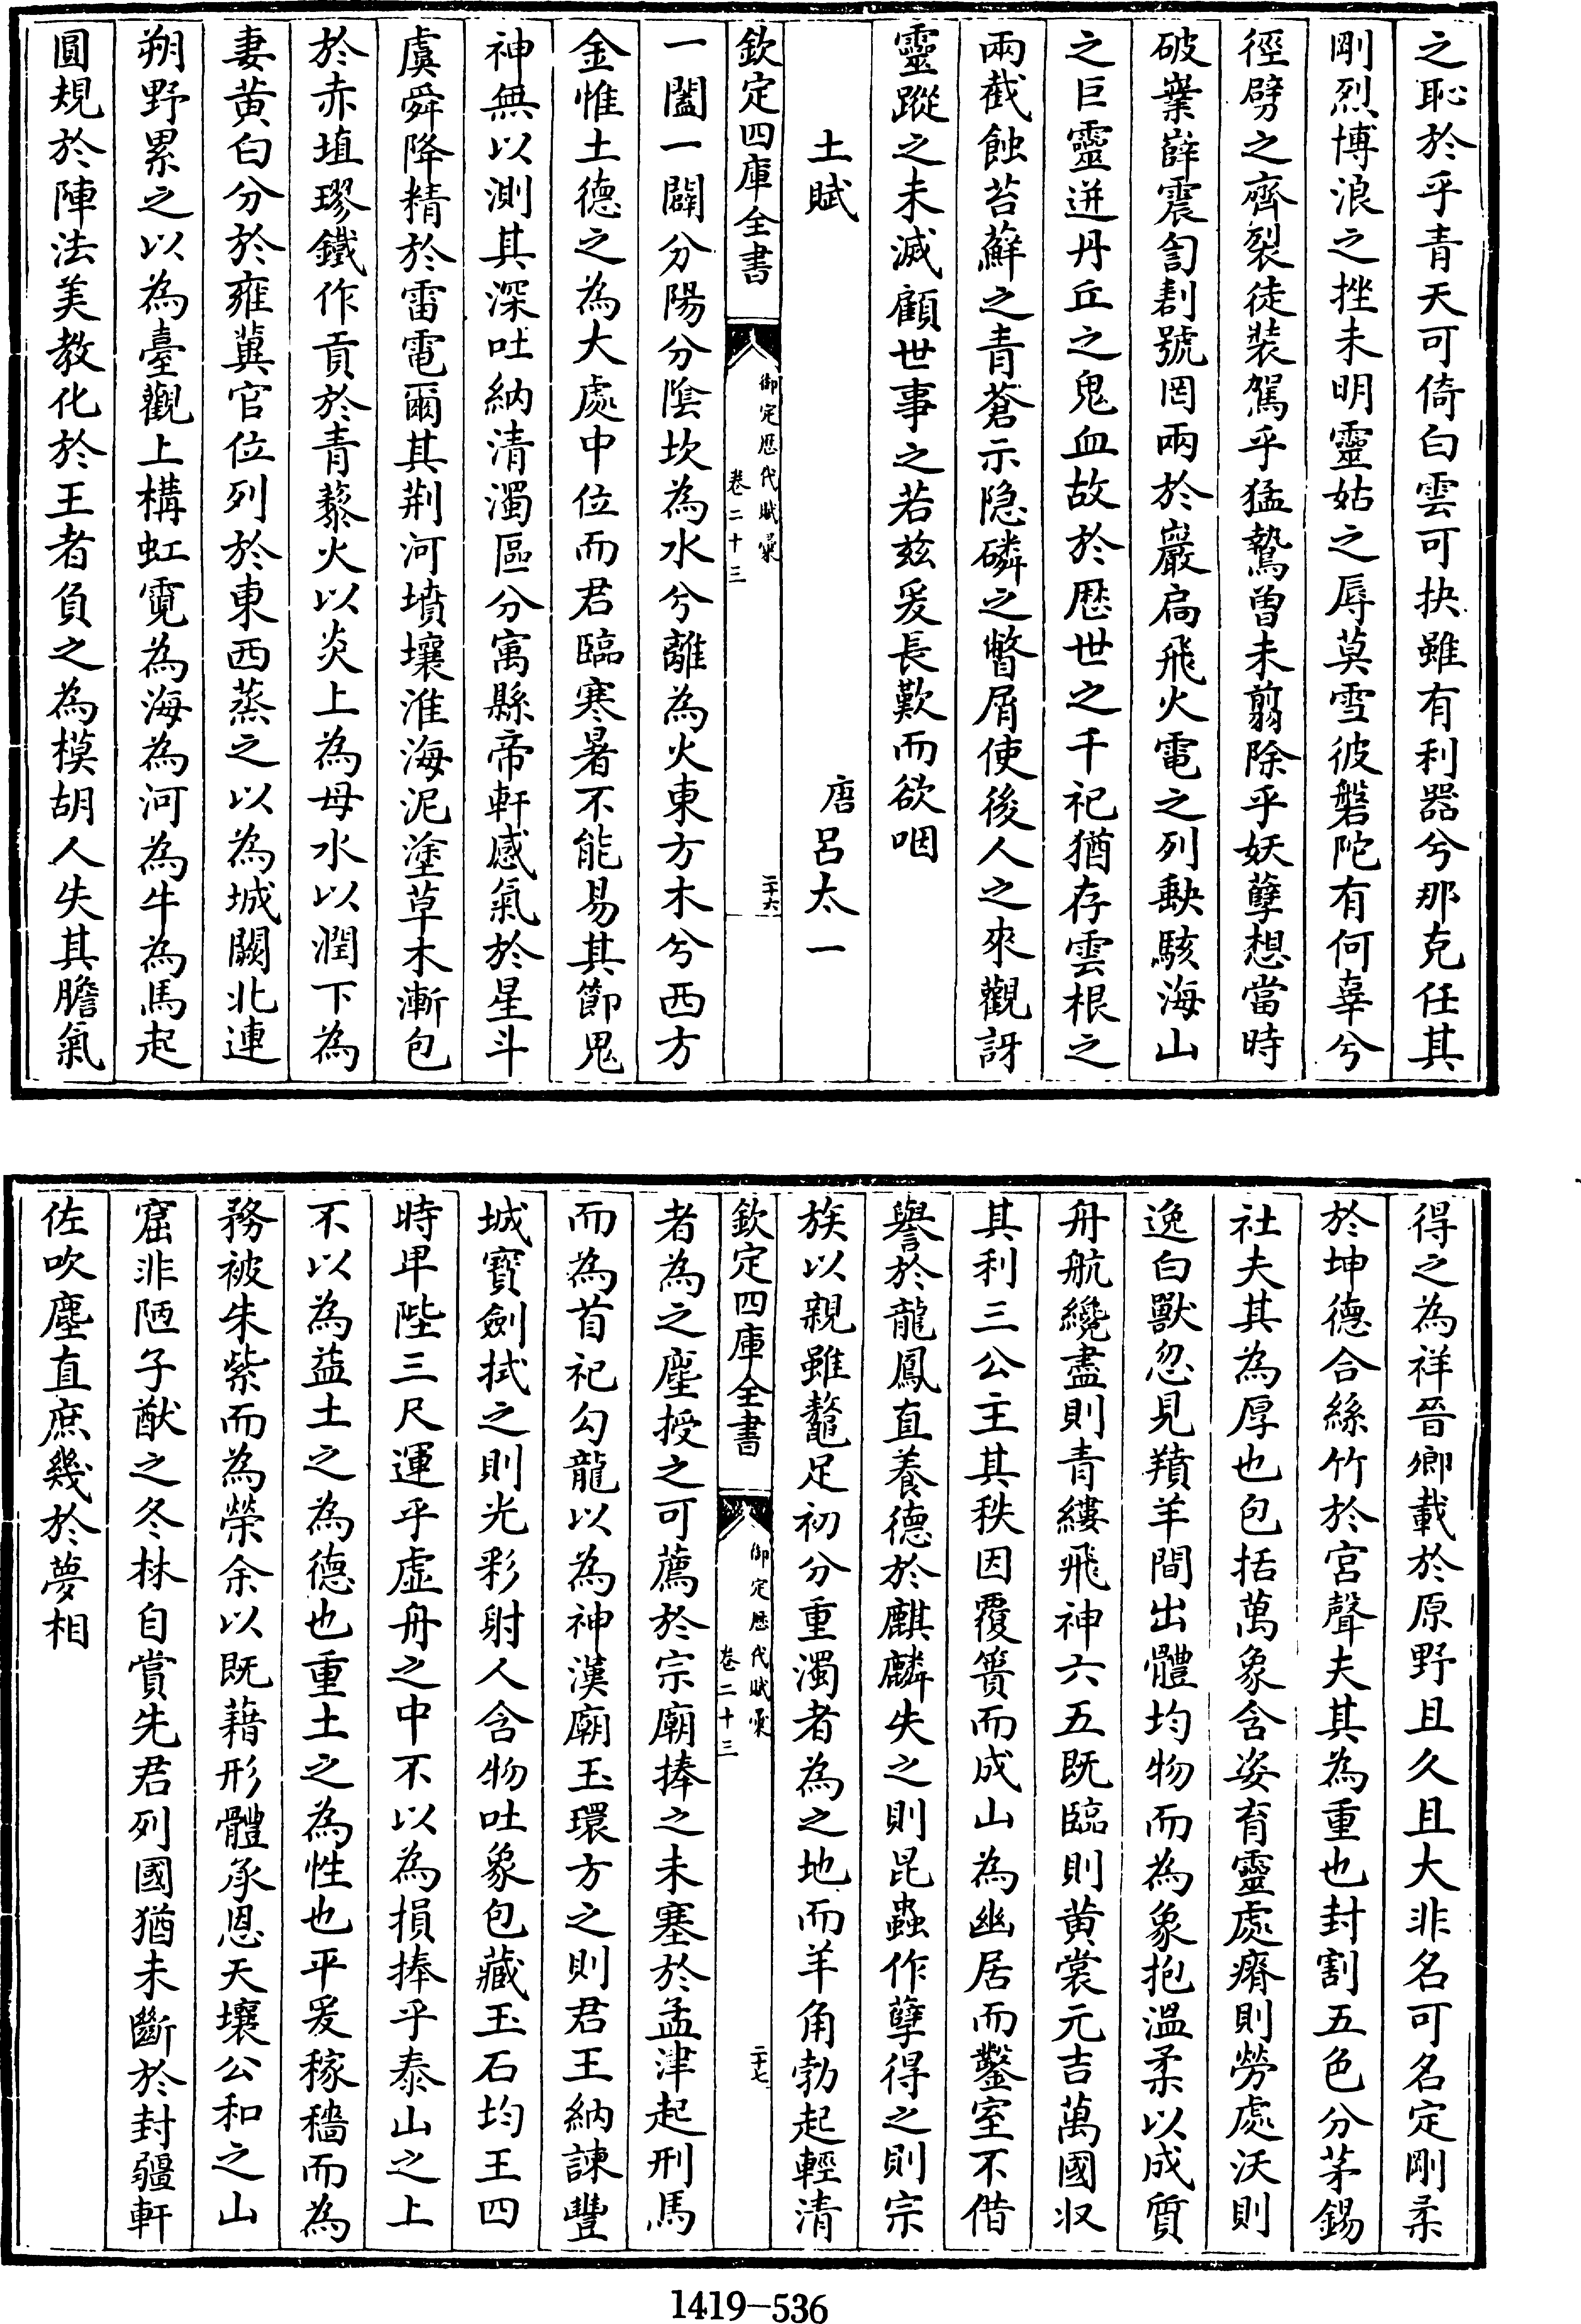 之恥於乎青天可倚白雲可抉雖有利器兮那克任其
剛烈博浪之挫未明靈姑之辱莫雪彼磐陀有何辜兮
徑劈之齊裂徒裝駕乎猛鷙曾未翦除乎妖孽想當時
破嶪㠎震訇剨號罔兩於巖扃飛火電之列缺駭海山
之巨靈迸丹丘之鬼血故於歷世之千祀猶存雲根之
兩截蝕苔蘚之青蒼示隐磷之瞥屑使後人之來觀訝
靈蹤之未滅顧世事之若兹爰長歎而欲咽
土賦 唐呂太一
欽定四庫全書 御定歷代賦彙 卷二十三 二十六
一闔一闢分陽分陰坎為水兮離為火東方木兮西方
金惟土德之為大處中位而君臨寒暑不能易其節鬼
神無以測其深吐納清濁區分寓縣帝軒感氣於星斗
虞舜降精於雷電爾其荆河墳壤淮海泥塗草木漸包
於赤埴璆鐵作貢於青藜火以炎上為母水以潤下為
妻黄白分於雍冀官位列於東西蒸之以為城闕北連
朔野累之以為臺觀上構虹霓為海為河為牛為馬起
圓規於陣法美教化於王者負之為模胡人失其膽氣
得之為祥晉卿載於原野且久且大非名可名定剛柔
於坤德合絲竹於宮聲夫其為重也封割五色分茅錫
社夫其為厚也包括萬象含姿育靈處瘠則勞處沃則
逸白獸忽見羵羊間出體均物而為象抱温柔以成質
舟航纔盡則青縷飛神六五既臨則黄裳元吉萬國収
其利三公主其秩因覆簣而成山為幽居而鑿室不借
譽於龍鳳直養德於麒麟失之則昆蟲作孽得之則宗
族以親雖鼇足初分重濁者為之地而羊角勃起輕清
欽定四庫全書 御定歷代賦彙 卷二十三 二十七
者為之塵授之可薦於宗廟捧之未塞於孟津起刑馬
而為首祀勾龍以為神漢廟玉環方之則君王納諫豐
城寶劍拭之則光彩射人含物吐象包藏玉石均王四
時卑陛三尺運乎虛舟之中不以為損捧乎泰山之上
不以為益土之為德也重土之為性也平爰稼穡而為
務被朱紫而為榮余以既藉形體承恩天壤公和之山
窟非陋子猷之冬林自賞先君列國猶未斷於封疆軒
佐吹塵直庶幾於夢相
1419-536